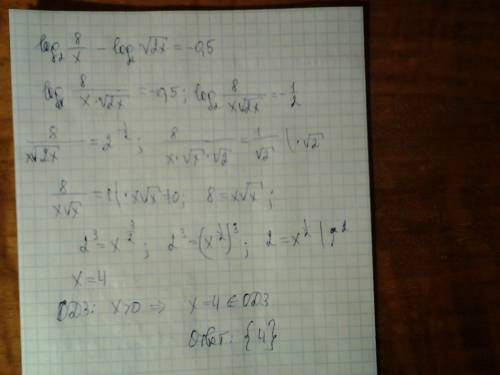 log₂ 8/x - log₂ √2x = -0,5
log₂ 8/(x·√2x) = -0,5; log₂ 8/(x√2x) = -1/2
8/(x√2x) = 2^(-1/2); 8/(x·√x·√2) = 1/√2 | ·√2
8/(x√x) = 1 | ·x√x ≠ 0; 8 = x√x;
2³ = x^(3/2); 2³ = (x^(1/2))³; 2 = x^(1/2) | ^2
x = 4
ОДЗ: x>0 ⇒ x=4 ∈ ОДЗ
Ответ: {4}